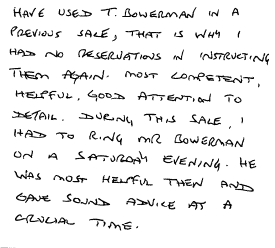 HAVE USED T. BOWERMAN IN A
PREVIOUS SALE, THAT IS WHY I
HAD NO RESERVATIONS IN INSTRUCTING
THEM AGAIN. MOST COMPETENT,
HELPFUL, GOOD ATTENTION TO
DETAIL. DURING THIS SALE, I
HAD TO RING MR BOWERMAN
ON A SATURDAY EVENING. HE
WAS MOST HELPFUL THEN AND
GAVE SOUND ADVICE AT A
CRUCIAL TIME.